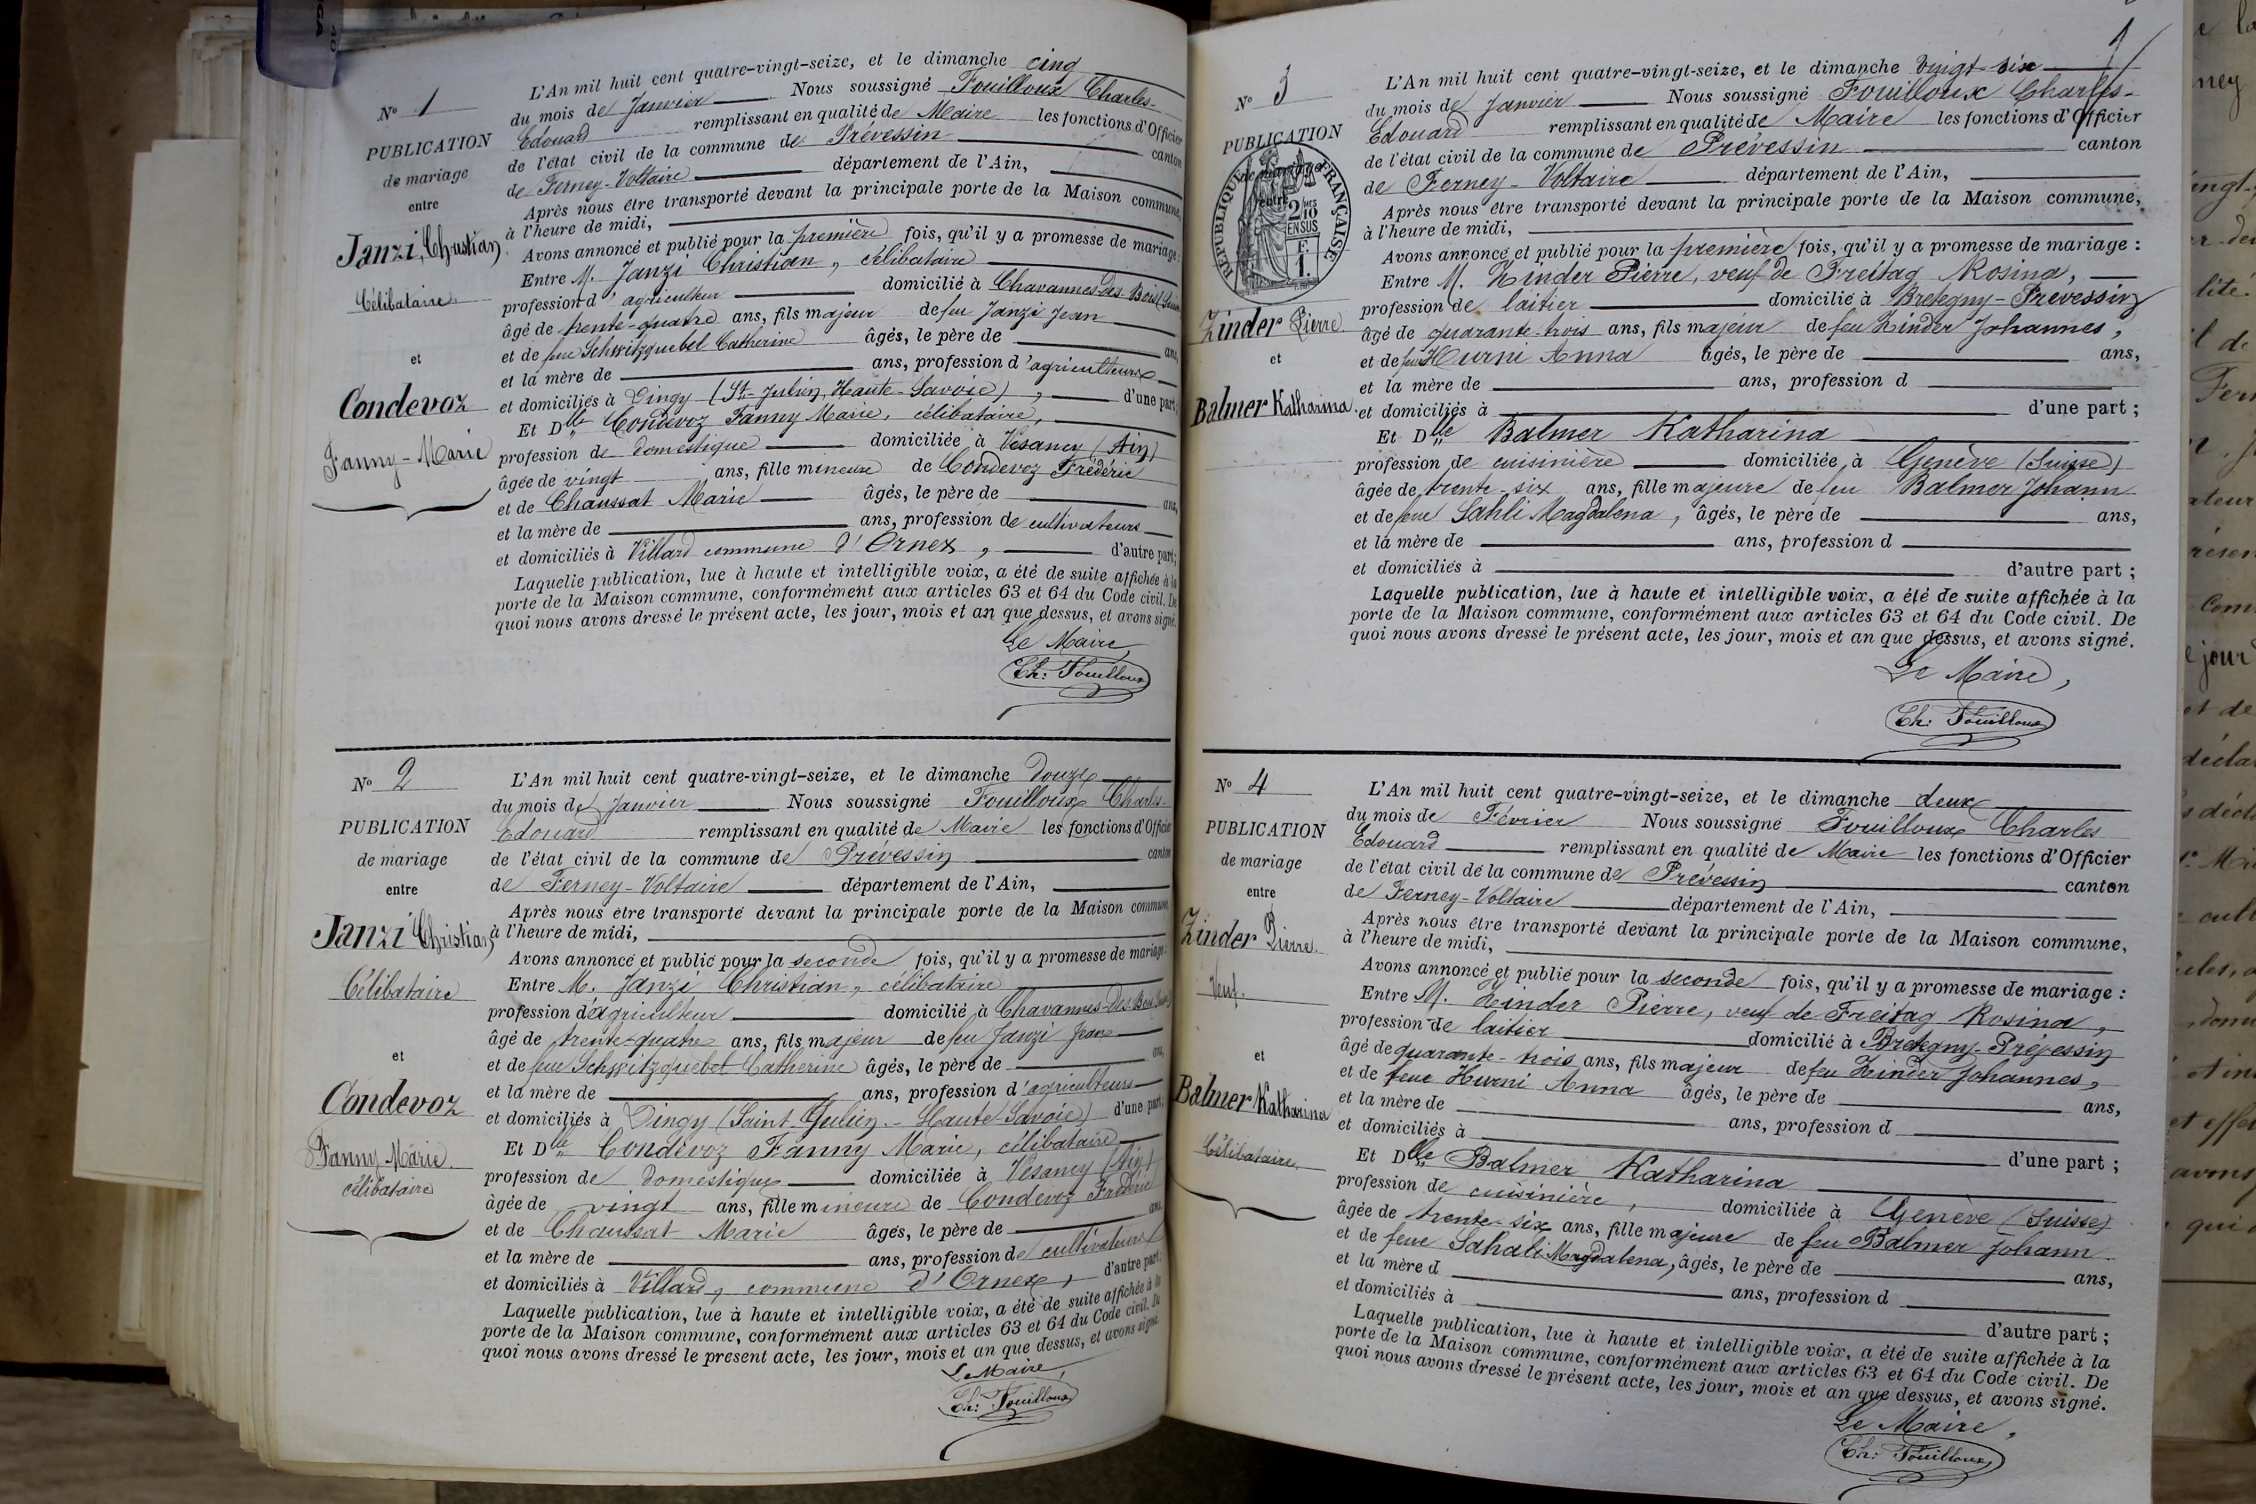 N° 1
PUBLICATION
de mariage
entre
Janzi, Christian
Célibataire,
et
Condevoz
Fanny-Marie
L'An mil huit cent quatre-vingt-seize, et le dimanche cinq
du mois de Janvier Nous soussigné Fouilloux Charles-
Edouard remplissant en qualité de Maire les fonctions d'Officier
de l'état civil de la commune de Prévessin canton
de Ferney-Voltaire département de l'Ain,
Après nous être transporté devant la principale porte de la Maison commune,
à l'heure de midi,
Avons annoncé et publié pour la première fois, qu'il y a promesse de mariage :
Entre M. Janzi Christian, célibataire
profession d'agriculteur domicilié à Chavannes-des-Bois
âgé de trente-quatre ans, fils majeur de feu Janzi Jean
et de feue Schwitzguebel Catherine âgés, le père de ans,
et la mère de ans, profession d'agriculteurs
et domiciliés à Dingy (St-Julien, Haute-Savoie), d'une part;
Et Dlle Condevoz Fanny Marie, célibataire,
profession de domestique domiciliée à Vésancy (Ain)
âgée de vingt ans, fille mineure de Condevoz Frédéric
et de Chaussat Marie âgés, le père de ans,
et la mère de ans, profession de cultivateurs
et domiciliés à Villard commune d'Ornex, d'autre part;
Laquelle publication, lue à haute et intelligible voix, a été de suite affichée à la
porte de la Maison commune, conformément aux articles 63 et 64 du Code civil. De
quoi nous avons dressé le présent acte, les jour, mois et an que dessus, et avons signé.
Le Maire,
Ch: Fouilloux
N° 2
PUBLICATION
de mariage
entre
Janzi Christian
Célibataire
et
Condevoz
Fanny Marie
célibataire
L'An mil huit cent quatre-vingt-seize, et le dimanche douze
du mois de Janvier Nous soussigné Fouilloux Charles-
Edouard remplissant en qualité de Maire les fonctions d'Officier
de l'état civil de la commune de Prévessin canton
de Ferney-Voltaire département de l'Ain,
Après nous être transporté devant la principale porte de la Maison commune,
à l'heure de midi,
Avons annoncé et publié pour la seconde fois, qu'il y a promesse de mariage :
Entre M. Janzi Christian, célibataire
profession d'agriculteur domicilié à Chavannes-des-Bois
âgé de trente-quatre ans, fils majeur de feu Janzi Jean
et de feue Schwitzguebel Catherine âgés, le père de ans,
et la mère de ans, profession d'agriculteurs
et domiciliés à Dingy (Saint-Julien - Haute Savoie) d'une part;
Et Dlle Condevoz Fanny Marie, célibataire
profession de domestique domiciliée à Vésancy (Ain)
âgée de vingt ans, fille mineure de Condevoz Frédéric
et de Chaussat Marie âgés, le père de ans,
et la mère de ans, profession de cultivateurs
et domiciliés à Villard, commune d'Ornex, d'autre part;
Laquelle publication, lue à haute et intelligible voix, a été de suite affichée à la
porte de la Maison commune, conformément aux articles 63 et 64 du Code civil. De
quoi nous avons dressé le présent acte, les jour, mois et an que dessus, et avons signé.
Le Maire,
Ch: Fouilloux
N° 3
PUBLICATION
de mariage
entre
RÉPUBLIQUE FRANÇAISE
2/10
EN SUS
F.
1.
Zinder Pierre
et
Balmer Katharina
L'An mil huit cent quatre-vingt-seize, et le dimanche vingt-six
du mois de Janvier Nous soussigné Fouilloux Charles-
Edouard remplissant en qualité de Maire les fonctions d'Officier
de l'état civil de la commune de Prévessin canton
de Ferney-Voltaire département de l'Ain,
Après nous être transporté devant la principale porte de la Maison commune,
à l'heure de midi,
Avons annoncé et publié pour la première fois, qu'il y a promesse de mariage :
Entre M. Zinder Pierre, veuf de Freitag Rosina,
profession de laitier domicilié à Bretegny-Prévessin
âgé de quarante-trois ans, fils majeur de feu Zinder Johannes,
et de feue Hurni Anna âgés, le père de ans,
et la mère de ans, profession d
et domiciliés à d'une part;
Et Dlle Balmer Katharina
profession de cuisinière domiciliée à Genève (Suisse)
âgée de trente-six ans, fille majeure de feu Balmer Johann
et de feue Sahli Magdalena, âgés, le père de ans,
et la mère de ans, profession d
et domiciliés à d'autre part;
Laquelle publication, lue à haute et intelligible voix, a été de suite affichée à la
porte de la Maison commune, conformément aux articles 63 et 64 du Code civil. De
quoi nous avons dressé le présent acte, les jour, mois et an que dessus, et avons signé.
Le Maire,
Ch: Fouilloux
N° 4
PUBLICATION
de mariage
entre
Zinder Pierre
Veuf.
et
Balmer Katharina
Célibataire
L'An mil huit cent quatre-vingt-seize, et le dimanche deux
du mois de Février Nous soussigné Fouilloux Charles
Edouard remplissant en qualité de Maire les fonctions d'Officier
de l'état civil de la commune de Prévessin canton
de Ferney-Voltaire département de l'Ain,
Après nous être transporté devant la principale porte de la Maison commune,
à l'heure de midi,
Avons annoncé et publié pour la seconde fois, qu'il y a promesse de mariage :
Entre M. Zinder Pierre, veuf de Freitag Rosina,
profession de laitier domicilié à Bretegny-Prévessin
âgé de quarante-trois ans, fils majeur de feu Zinder Johannes,
et de feue Hurni Anna âgés, le père de ans,
et la mère de ans, profession d
et domiciliés à d'une part;
Et Dlle Balmer Katharina
profession de cuisinière, domiciliée à Genève (Suisse)
âgée de trente-six ans, fille majeure de feu Balmer Johann
et de feue Sahali Magdalena, âgés, le père de ans,
et la mère d ans, profession d
et domiciliés à d'autre part;
Laquelle publication, lue à haute et intelligible voix, a été de suite affichée à la
porte de la Maison commune, conformément aux articles 63 et 64 du Code civil. De
quoi nous avons dressé le présent acte, les jour, mois et an que dessus, et avons signé.
Le Maire,
Ch: Fouilloux